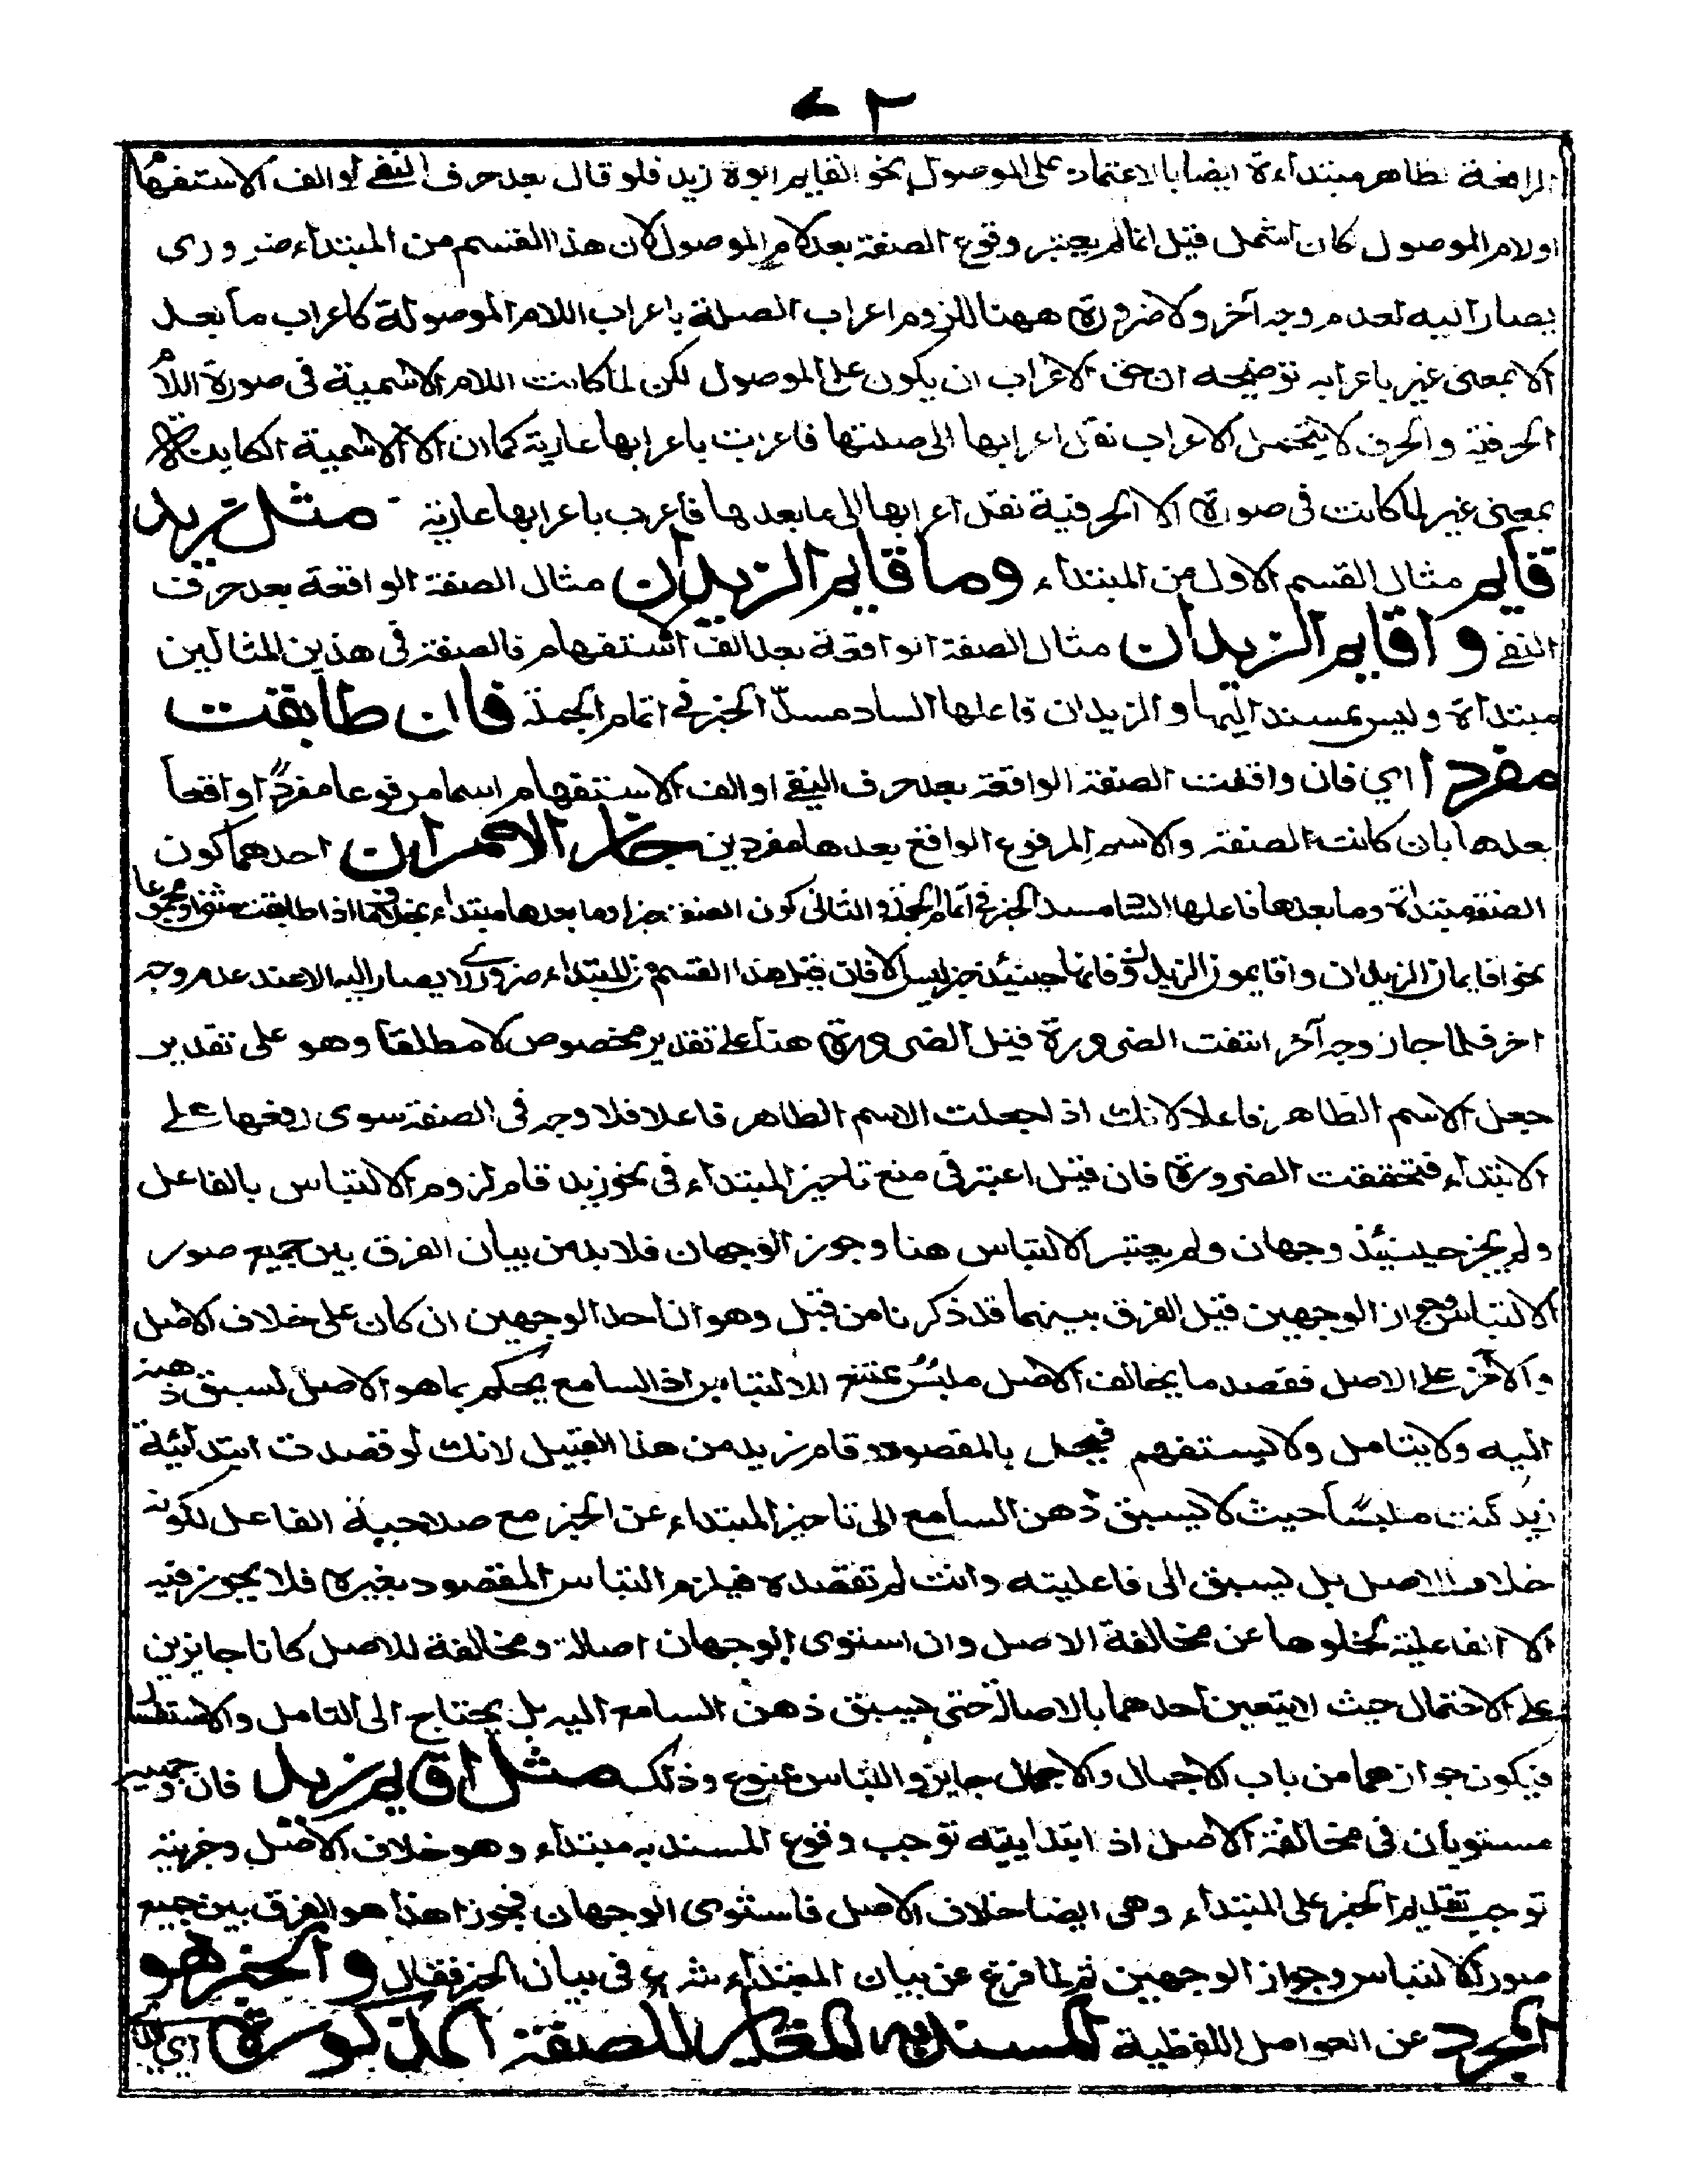 ٢
الرافعة لظاهر مبتداءة ايضا بالاعتماد على الموصول نحو القايم ابوه زيد فلو قال بعد حرف النفي او الف الاستفهام
او لام الموصول كان اشمل قيل انما لم يعتبر وقوع الصفة بعد لام الموصول لان هذا القسم من المبتداء ضروري
يصار اليه لعدم وجه آخر ولا ضرورة ههنا للزوم اعراب الصلة باعراب اللام الموصولة كاعراب ما بعد
الا بمعنى غير باعرابه توضيحه ان حق الاعراب ان يكون على الموصول لكن لما كانت اللام الاسمية في صورة اللام
الحرفية والحرف لا يتحمل الاعراب نقل اعرابها الى صلتها فاعربت باعرابها عارية كما ان الا الاسمية الكاينة
بمعنى غير لما كانت في صورة الا الحرفية نقل اعرابها الى ما بعدها فاعرب باعرابها عارية مثل زيد
قايم مثال القسم الاول من المبتداء وما قايم الزيدان مثال الصفة الواقعة بعد حرف
النفي واقايم الزيدان مثال الصفة الواقعة بعد الف استفهام فالصفة في هذين المثالين
مبتداة وليس بمسند اليها والزيدان فاعلها الساد مسد الخبر في اتمام الجملة فان طابقت
مفردا اي فان وافقت الصفة الواقعة بعد حرف النفي او الف الاستفهام اسما مرفوعا مفردا واقعا
بعدها بان كانت الصفة والاسم المرفوع الواقع بعدها مفردين جاز الامران احدهما كون
الصفة مبتداة وما بعدها فاعلها الساد مسد الخبر في اتمام الجملة والثاني كون الصفة خبرا وما بعدها مبتداء بخلاف ما اذا طابقت مثنى او مجموعا
نحو اقايمان الزيدان واقايمون الزيدون فانها حينئذ خبر ليس الا فان قيل هذا القسم من المبتداء ضروري لا يصار اليه الا عند عدم وجه
اخر فلما جاز وجه آخر انتفت الضرورة قيل الضرورة هنا على تقدير مخصوص لا مطلقا وهو على تقدير
جعل الاسم الظاهر فاعلا لانك اذا جعلت الاسم الظاهر فاعلا فلا وجه في الصفة سوى رفعها على
الابتداء فتحققت الضرورة فان قيل اعتبر في منع تاخير المبتداء في نحو زيد قام لزوم الالتباس بالفاعل
ولم يجز حينئذ وجهان ولم يعتبر الالتباس هنا وجوز الوجهان فلا بد من بيان الفرق بين جميع صور
الالتباس وجواز الوجهين قيل الفرق بينهما قد ذكرنا من قبل وهو ان احد الوجهين ان كان على خلاف الاصل
والآخر على الاصل فقصد ما يخالف الاصل ملبس ممتنع للالتباس اذ السامع يحكم بما هو الاصل لسبق ذهنه
اليه ولا يتامل ولا يستفهم فيخل بالمقصود وقام زيد من هذا القبيل لانك لو قصدت ابتدائية
زيد كنت ملبسا حيث لا يسبق ذهن السامع الى تاخير المبتداء عن الخبر مع صلاحية الفاعل لكونه
خلاف الاصل بل يسبق الى فاعليته وانت لم تقصده فيلزم التباس المقصود بغيره فلا يجوز فيه
الا الفاعلية لخلوها عن مخالفة الاصل وان استوى الوجهان اصالة ومخالفة للاصل كانا جايزين
على الاحتمال حيث لا يتعين احدهما بالاصالة حتى يسبق ذهن السامع اليه بل يحتاج الى التامل والاستفسار
فيكون جوازهما من باب الاجمال والاجمال جايز والالتباس ممنوع وذلك مثل اقايم زيد فان وجهيه
مستويان في مخالفة الاصل اذ ابتدائيته توجب وقوع المسند به مبتداء وهو خلاف الاصل وخبريته
توجب تقديم الخبر على المبتداء وهى ايضا خلاف الاصل فاستوى الوجهان فجوزا هذا هو الفرق بين جميع
صور الالتباس وجواز الوجهين ثم لما فرغ عن بيان المبتداء شرع في بيان الخبر فقال والخبر هو
المجرد عن العوامل اللفظية المسند به المغاير للصفة المذكورة اي